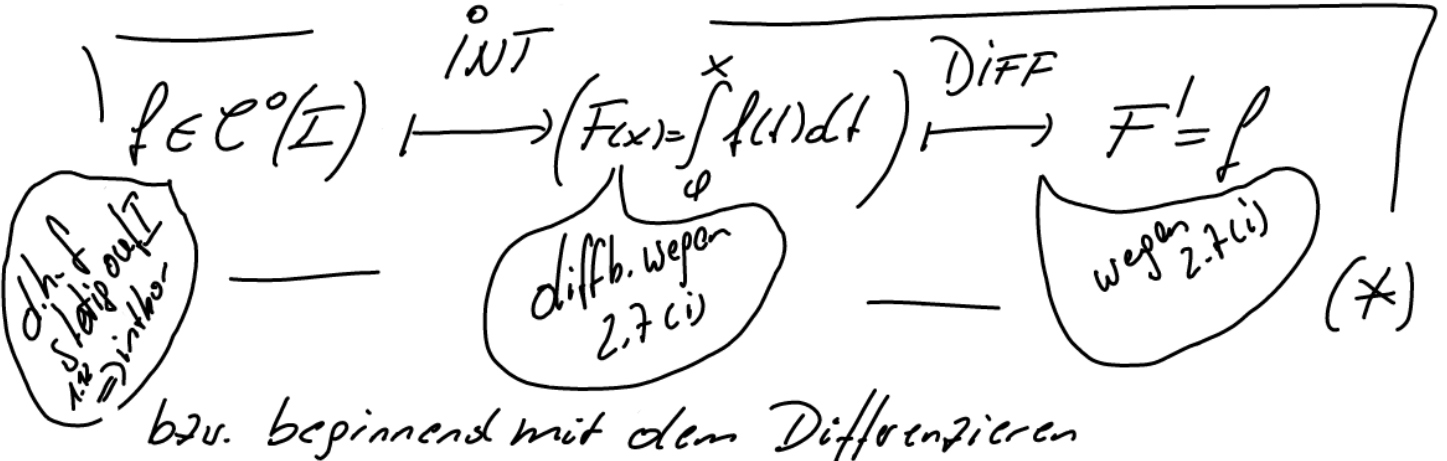 INT
DIFF
f ∈ C⁰(I) ↦ (F(x) = ∫_φ^x f(t)dt) ↦ F' = f
d.h. f
stetig auf I
⇒ intbar
diffb. wegen
2.7(i)
wegen
2.7(i)
(*)
bzw. beginnend mit dem Differenzieren